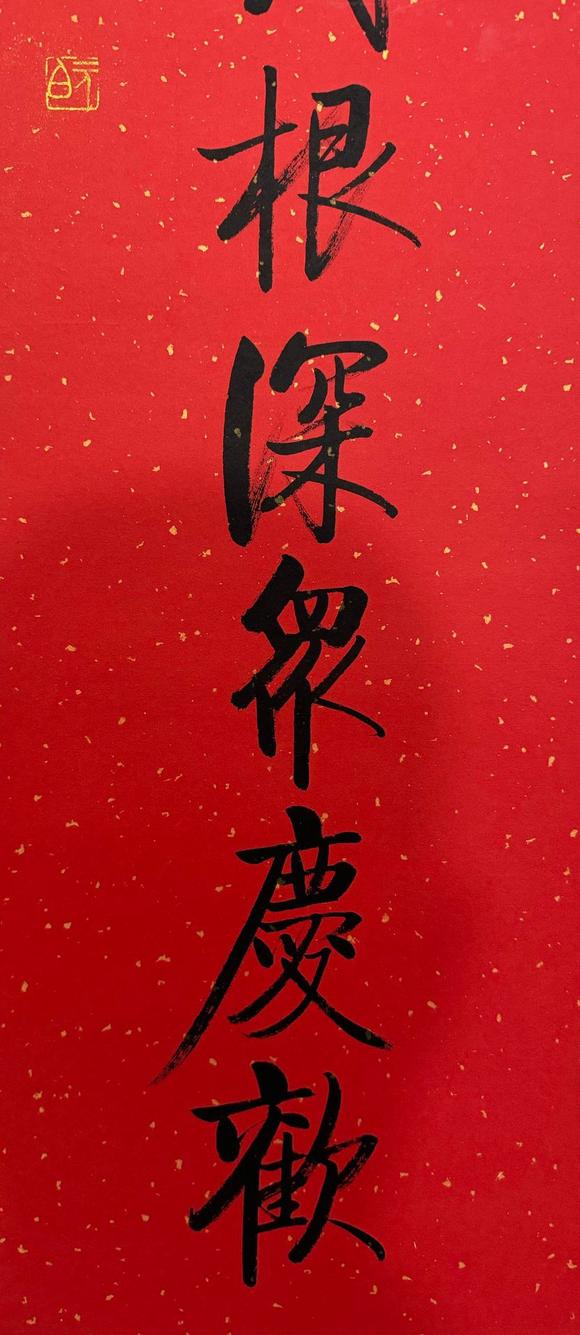 根深眾慶歡